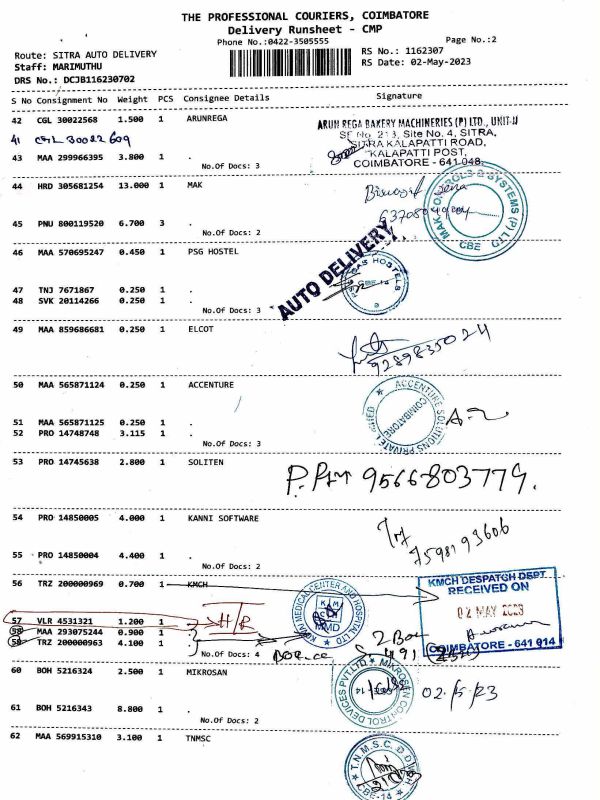 THE PROFESSIONAL COURIERS, COIMBATORE
Delivery Runsheet - CMP
Phone No.:0422-3505555
Page No.:2
Route: SITRA AUTO DELIVERY
RS No.: 1162307
Staff: MARIMUTHU
RS Date: 02-May-2023
DRS No.: DCJB116230702
S No Consignment No Weight PCS Consignee Details Signature
42 CGL 30022568 1.500 1 ARUNREGA
ARUN REGA BAKERY MACHINERIES (P) LTD., UNIT-II
SF No. 213, Site No. 4, SITRA,
SITRA KALAPATTI ROAD,
KALAPATTI POST,
COIMBATORE - 641 048.
41 CGL 30022609
43 MAA 299966395 3.800 1 .
No.Of Docs: 3
44 HRD 305681254 13.000 1 MAK
MAK CONTROLS & SYSTEMS (P) LTD
CBE
45 PNU 800119520 6.700 3 .
No.Of Docs: 2
46 MAA 570695247 0.450 1 PSG HOSTEL
AUTO DELIVERY
HOSTELS
47 TNJ 7671867 0.250 1 .
48 SVK 20114266 0.250 1 .
No.Of Docs: 3
49 MAA 859686681 0.250 1 ELCOT
9289835024
50 MAA 565871124 0.250 1 ACCENTURE
ACCENTURE SOLUTIONS PRIVATE LIMITED
COIMBATORE
51 MAA 565871125 0.250 1 .
52 PRO 14748748 3.115 1 .
No.Of Docs: 3
53 PRO 14745638 2.800 1 SOLITEN
9566803779.
54 PRO 14850005 4.000 1 KANNI SOFTWARE
7598193606
55 PRO 14850004 4.400 1 .
No.Of Docs: 2
56 TRZ 200000969 0.700 1 KMCH
KMCH DESPATCH DEPT
RECEIVED ON
02 MAY 2023
COIMBATORE - 641 014
MEDICAL CENTER AND HOSPITAL LTD
MMD
57 VLR 4531321 1.200 1
H/R
58 MAA 293075244 0.900 1
59 TRZ 200000963 4.100 1
No.Of Docs: 4
2 Box
60 BOH 5216324 2.500 1 MIKROSAN
MIKROSAN CONTROL DEVICES PVT.LTD
02/5/23
61 BOH 5216343 8.800 1 .
No.Of Docs: 2
62 MAA 569915310 3.100 1 TNMSC
T.N.M.S.C.
CBE-14